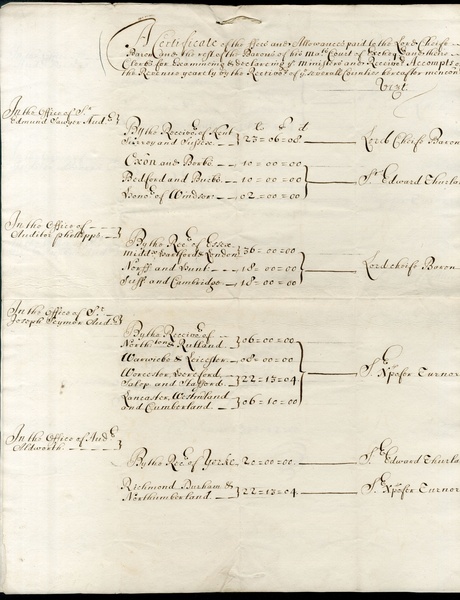 A Certificate of the ffees and Allowances paid to the Lord Cheife
Baron and the rest of the Barons of his ma:ts Court of Excheq: and their
Clerks for Examining & declareing ye Ministers and Receivors Accompts of
the Revenue yearely by the Receivors of ye severall Counties hereafter mencon
Vizt.
In the Office of Sr.
Edmund Sawyer Aud:
£ s d
By the Receivor of Kent
Surrey and Sussex 23=06=08 Lord Cheife Baron
Oxon and Berks 10=00=00
Bedford and Bucks 10=00=00 Sr. Edward Thurla
Honor of Windsor 02=00=00
In the Office of
Auditor Phellipps
By the Rec: of Essex
Middx: Hartford & London 36=00=00
Norff and Hunt 18=00=00 Lord cheife Baron
Suff and Cambridge 18=00=00
In the Office of Sr.
Joseph Seymor Aud:
By the Receivor of
Northton & Rutland 06=00=00
Warwick & Leicester 08=00=00
Worcester, Hereford
Salop and Stafford 22=13=04 Sr. Xpofer Turnor
Lancaster, Westmland
and Cumberland 06=10=00
In the Office of Aud:
Aldworth
By the Rec: of Yorke 20=00=00 Sr. Edward Thurla
Richmond Durham &
Northumberland 22=13=04 Sr. Xpofer Turnor